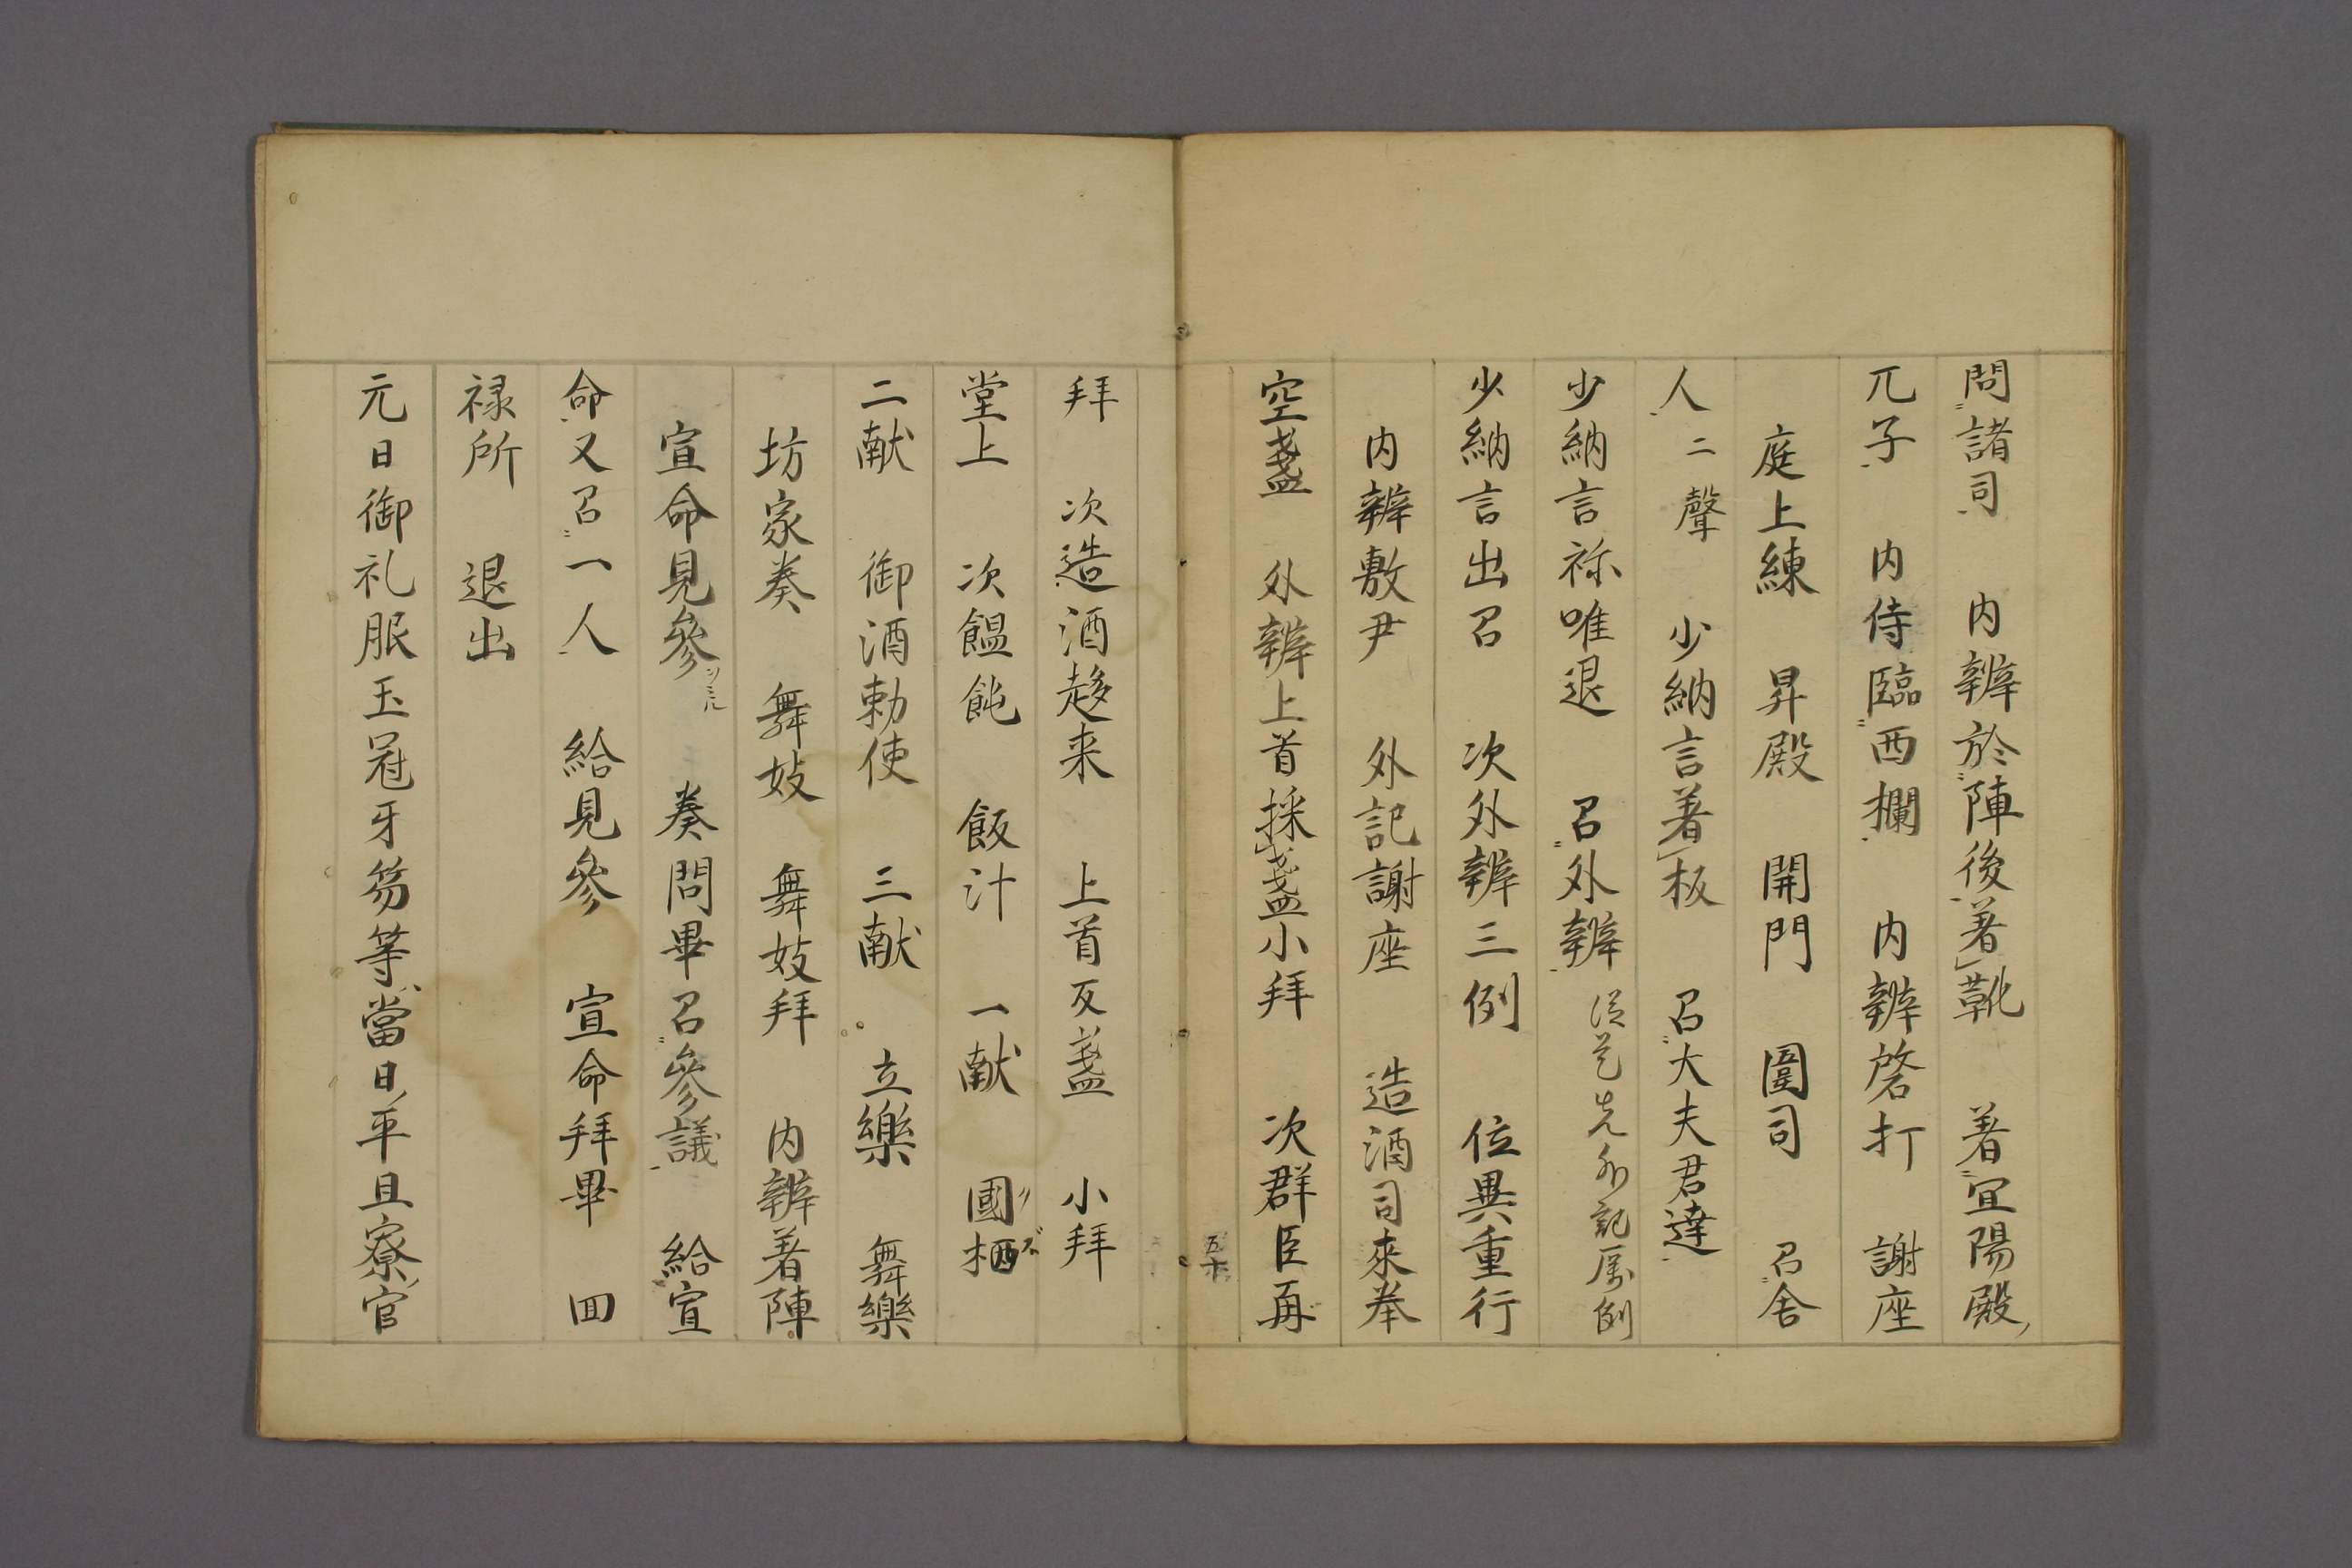 問諸司　内辨於陣後著靴　著宜陽殿
兀子　内侍臨西欄　内辨磬打　謝座
庭上練　昇殿　開門　圍司　召舎
人二聲　少納言著板　召大夫君達
少納言祢唯退　召外辨
少納言出召　次外辨三例　位異重行
内辨敷尹　外記謝座　造酒司來奉
空盞　外辨上首採盞小拜　次群臣再
拜　次造酒趍来　上首反盞　小拜
堂上　次饂飩　飯汁　一献　國栖
二献　御酒勅使　三献　立樂　舞樂
坊家奏　舞妓　舞妓拜　内辨著陣
宣命見參　奏問畢召參議　給宣
命又召一人　給見參　宣命拜畢　回
禄所　退出
元日御礼服玉冠牙笏等、當日平旦寮官